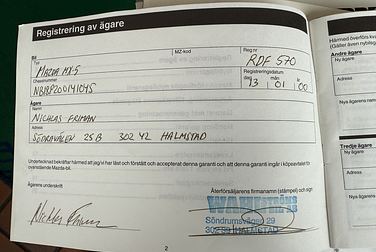 Registrering av ägare
Bil
Typ
MZ-kod
Reg nr
MAZDA MX-5
RDF 570
Chassinummer
Registreringsdatum
dag
mån
år
13 01 00
Ägare
Namn
NICHLAS FRIMAN
Adress
302 42 HALMSTAD
Undertecknad bekräftar härmed att jag/vi har läst och förstått och accepterat denna garanti och att denna garanti ingår i köpeavtalet för
ovanstående Mazda-bil.
Ägarens underskrift
Återförsäljarens firmanamn (stämpel) och sign
Söndrumsvägen 29
HALMSTAD
2
Härmed överförs
(Gäller även nybils
Andre ägare
Ny ägare
Adress
Nya ägarens namn
Tredje ägare
Ny ägare
Adress
Nya ägarens